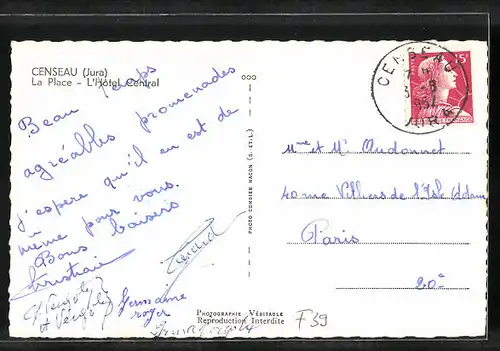 CENSEAU (Jura)
La Place - L'Hôtel Central
Beau temps
agréables promenades
j'espère qu'il en est de
même pour vous.
Bons baisers
Christian
Gérard
Germaine
roger
PHOTO COMBIER MACON (S.-ET-L.)
PHOTOGRAPHIE VÉRITABLE
Reproduction Interdite
F39
CENSEAU
JURA
15F
Mme et Mr Audonnet
40 rue Villiers de l'Isle Adam
Paris
20e